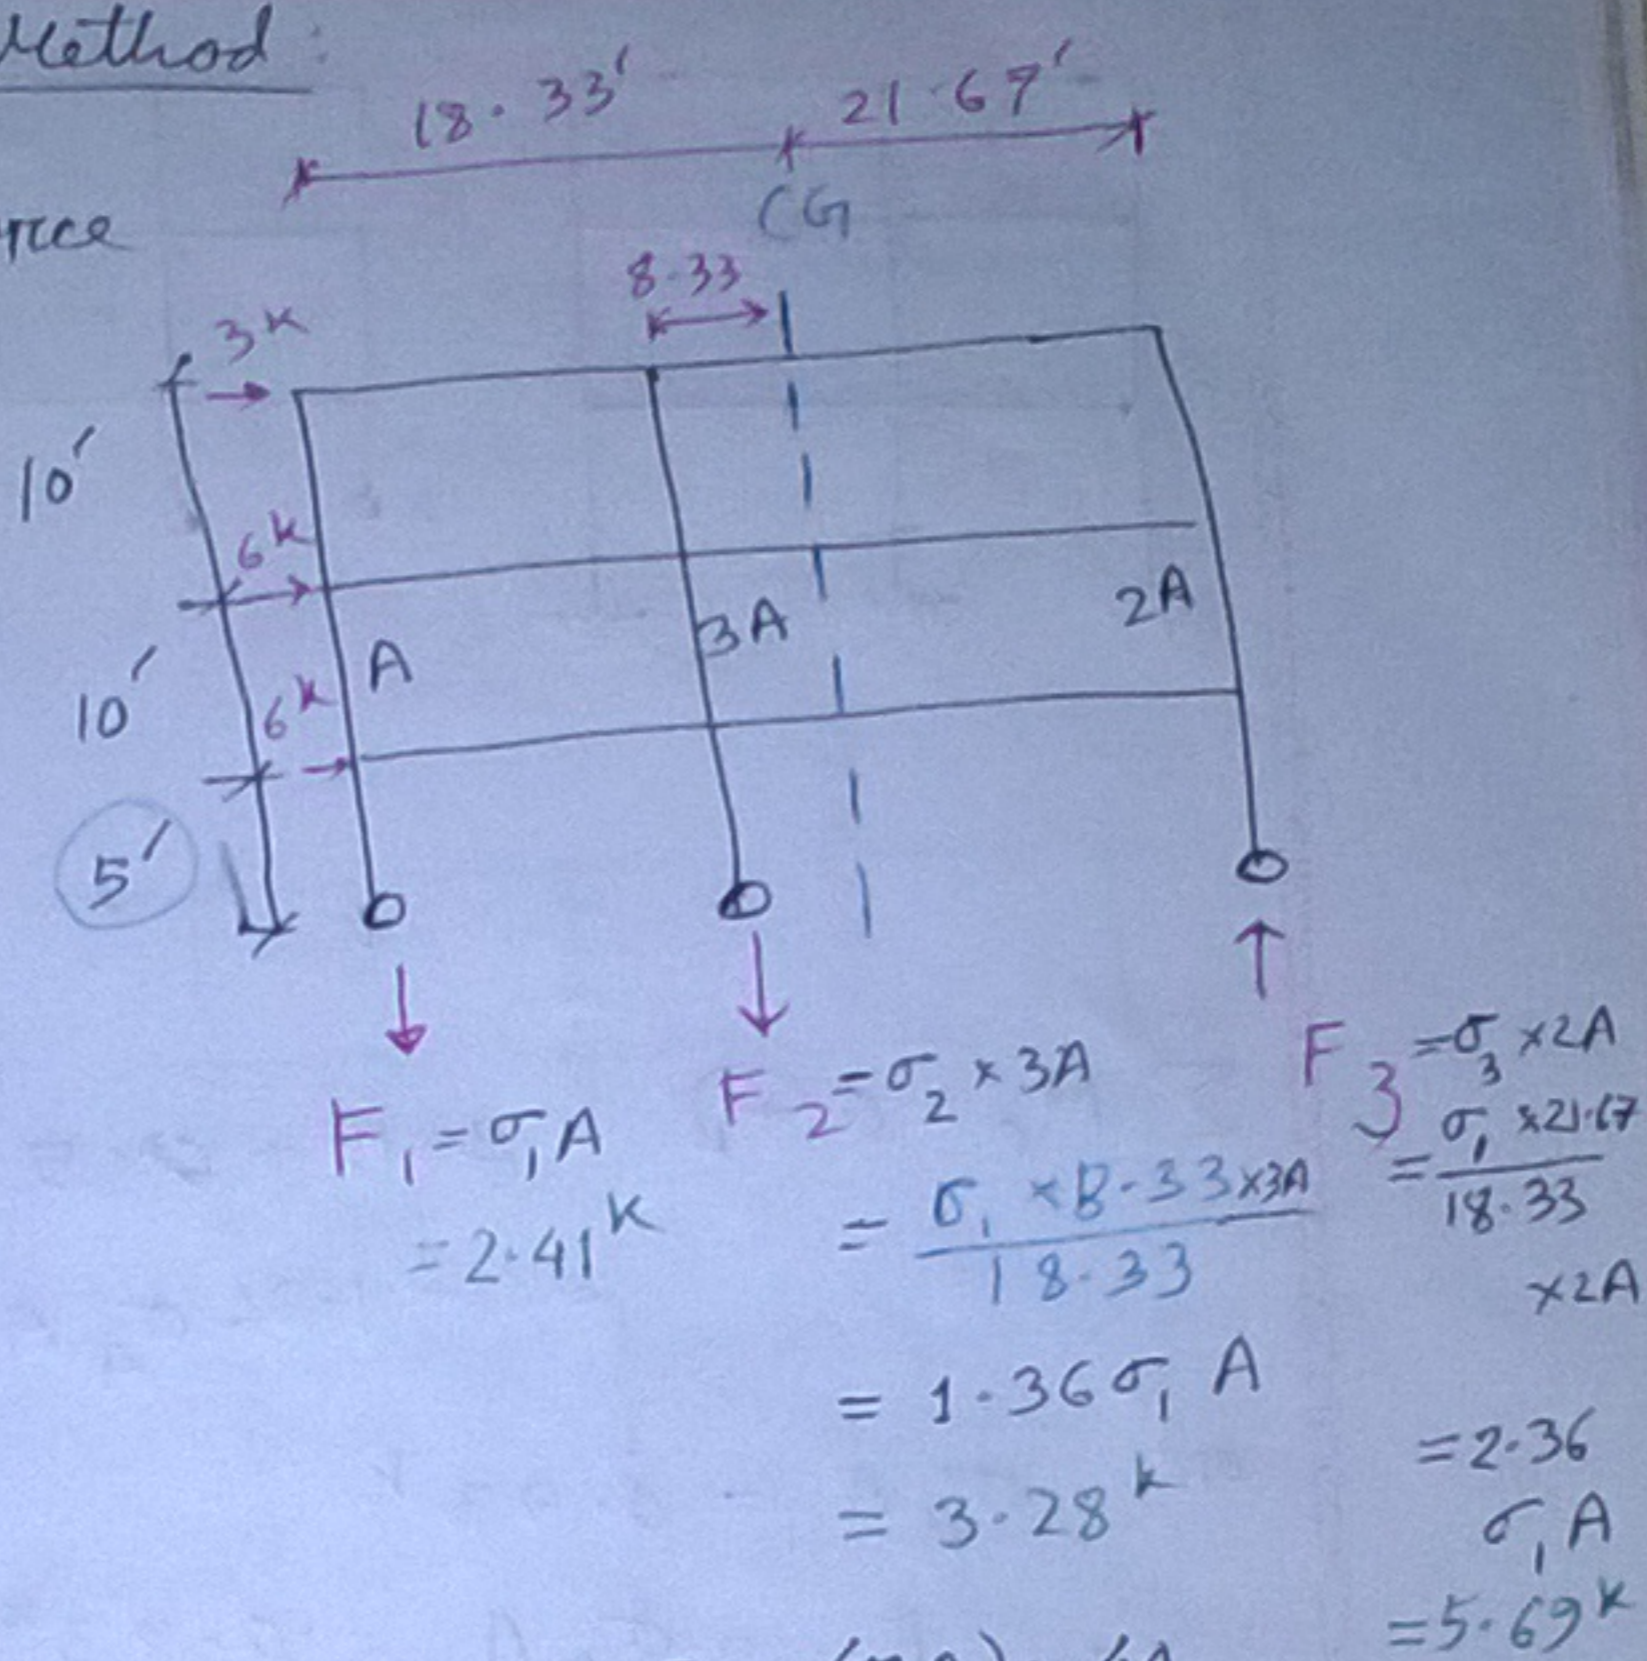 Method:
18.33' 21.67'
CG
8.33
3k
10'
6k
10'
6k
A
3A
2A
5'
F1 = σ1A
= 2.41k
F2 = σ2 × 3A
= σ1 × 8.33 × 3A
18.33
= 1.36 σ1 A
= 3.28k
F3 = σ3 × 2A
= σ1 × 21.67
18.33
× 2A
= 2.36
σ1 A
= 5.69k